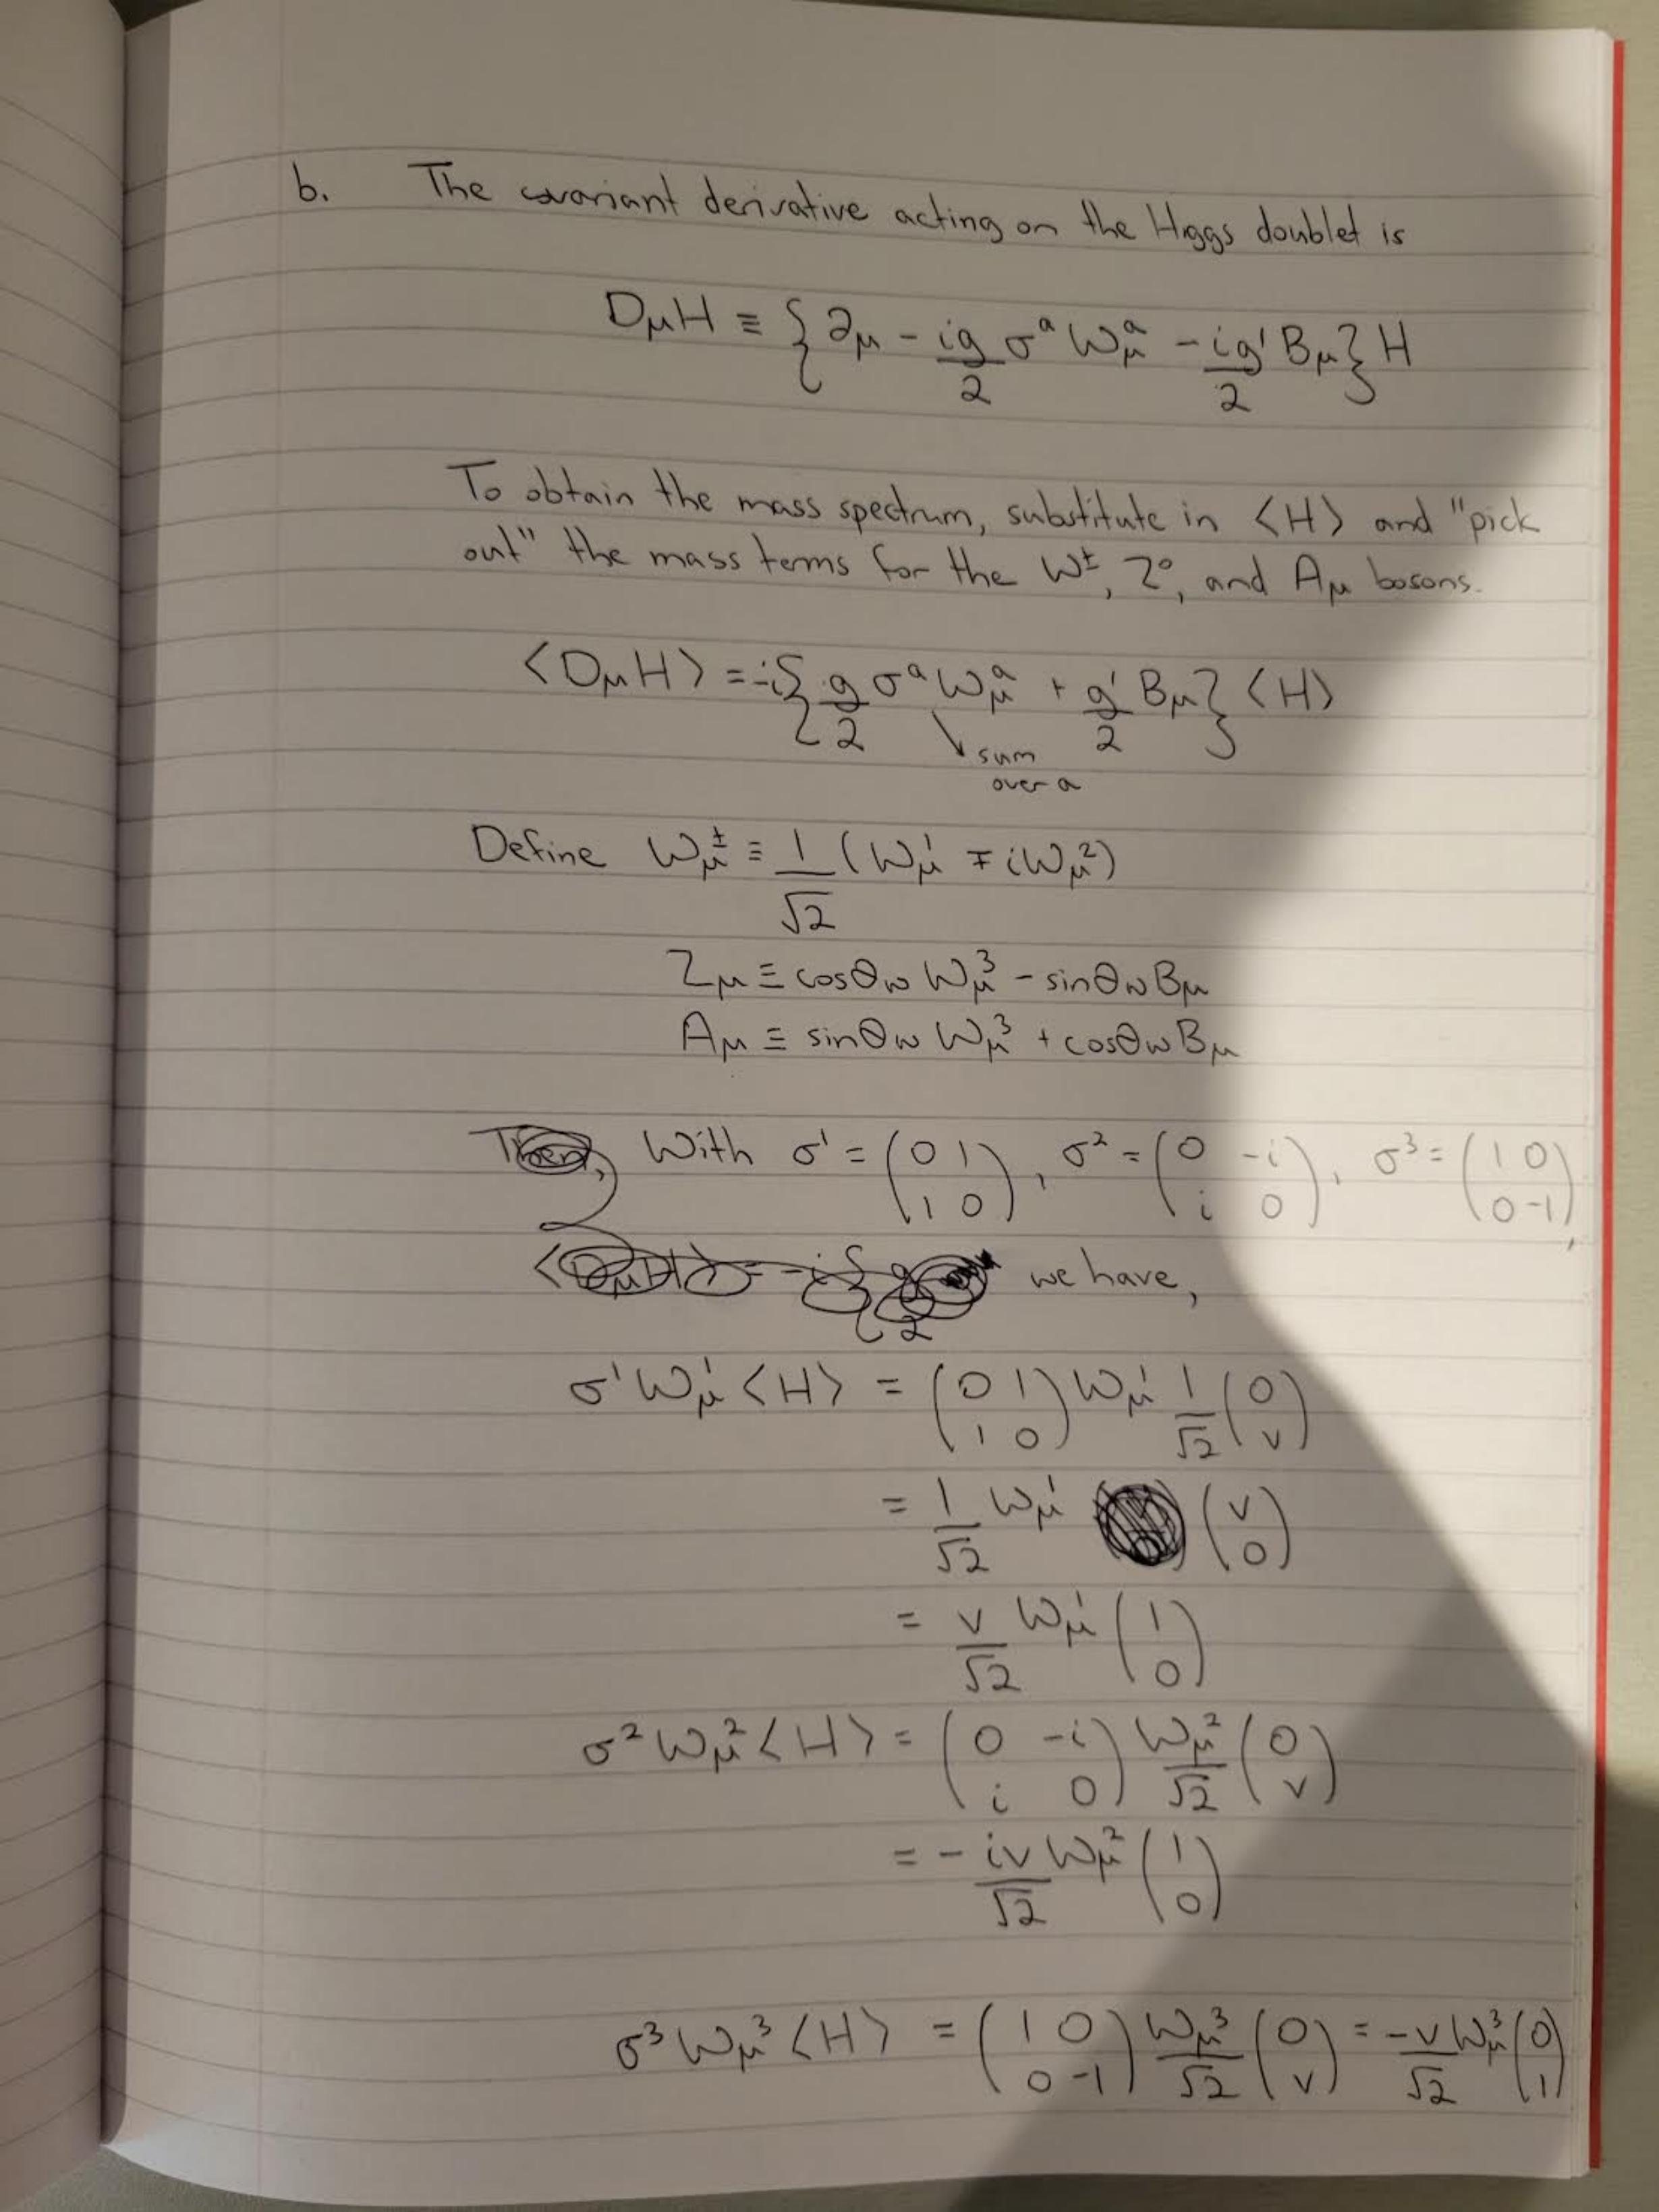 b. The covariant derivative acting on the Higgs doublet is
DμH ≡ {∂μ - ig/2 σᵃ Wμᵃ - ig'/2 Bμ} H
To obtain the mass spectrum, substitute in ⟨H⟩ and "pick
out" the mass terms for the W±, Z⁰, and Aμ bosons.
⟨DμH⟩ = -i{g/2 σᵃ Wμᵃ + g'/2 Bμ} ⟨H⟩
sum
over a
Define Wμ± ≡ 1/√2 (Wμ¹ ∓ iWμ²)
Zμ ≡ cosθw Wμ³ - sinθw Bμ
Aμ ≡ sinθw Wμ³ + cosθw Bμ
Then, With σ¹ = (0 1; 1 0), σ² = (0 -i; i 0), σ³ = (1 0; 0 -1),
⟨DμH⟩ = -i{g/2 we have,
σ¹Wμ¹⟨H⟩ = (0 1; 1 0) Wμ¹ 1/√2 (0; v)
= 1/√2 Wμ¹ (v; 0)
= v/√2 Wμ¹ (1; 0)
σ²Wμ²⟨H⟩ = (0 -i; i 0) Wμ²/√2 (0; v)
= - iv/√2 Wμ² (1; 0)
σ³Wμ³⟨H⟩ = (1 0; 0 -1) Wμ³/√2 (0; v) = -v/√2 Wμ³ (0; 1)